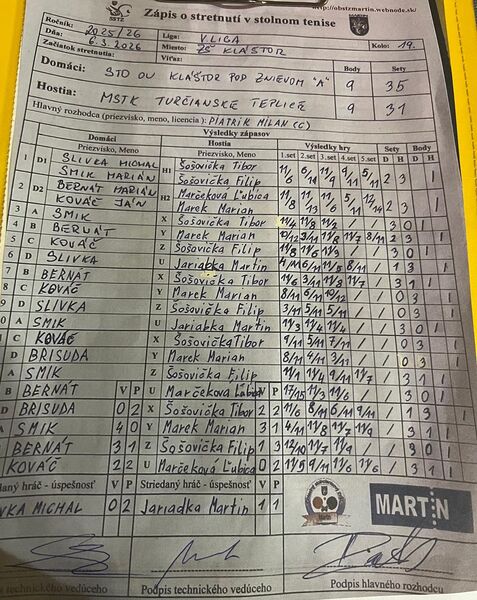 SSTZ Zápis o stretnutí v stolnom tenise http://obstzmartin.webnode.sk/
Ročník: 2025/26 Liga: V. LIGA
Dňa: 6.3.2026 Miesto: ZŠ KLÁŠTOR Kolo: 19.
Začiatok stretnutia: Víťaz:
Domáci: STO OU KLÁŠTOR POD ZNIEVOM "A" Body 9 Sety 35
Hostia: MSTK TURČIANSKE TEPLICE Body 9 Sety 31
Hlavný rozhodca (priezvisko, meno, licencia): PIATRIK MILAN (C)
Domáci Hostia Výsledky zápasov
Priezvisko, Meno Priezvisko, Meno Výsledky hry Sety Body
1.set 2.set 3.set 4.set 5.set D H D H
1 D1 SLIVKA MICHAL SMIK MARIÁN H1 Šošovička Tibor Šošovička Filip 2 3 1
2 D2 BERNÁT MARIÁN KOVÁČ JÁN H2 Marčeková Ľubica Marek Marian 2 3 1
3 A SMIK X Šošovička Tibor 3 0 1
4 B BERNÁT Y Marek Marian
5 C KOVÁČ Z Šošovička Filip 11/8 / / 3 0 1
6 D SLIVKA U Jariabka Martin / 1 3 1
7 B BERNÁT X Šošovička Tibor 11/6 3/11 11/8 11/7 / 3 1 1
8 C KOVÁČ Y Marek Marian 8/11 6/11 10/12 / / 0 3 1
9 D SLIVKA Z Šošovička Filip 3/11 5/11 5/11 / / 0 3 1
A SMIK U Jariabka Martin 11/3 11/4 11/4 / / 3 0 1
C KOVÁČ X Šošovička Tibor 9/11 5/11 7/11 / / 0 3 1
D BRISUDA Y Marek Marian 8/11 4/11 3/11 / / 0 3 1
A SMIK Z Šošovička Filip 11/1 11/4 9/11 11/7 / 3 1 1
B BERNÁT V P U Marčeková Ľubica V P 17/15 11/3 11/6 / / 3 0 1
D BRISUDA 0 2 X Šošovička Tibor 2 2 11/6 8/11 6/11 9/11 / 1 3 1
A SMIK 4 0 Y Marek Marian 3 1 4/11 11/8 11/7 11/9 / 3 1 1
BERNÁT 3 1 Z Šošovička Filip 1 3 12/10 11/7 11/9 / / 3 0 1
KOVÁČ 2 2 U Marčeková Ľubica 0 2 11/5 9/11 11/6 11/6 / 3 1 1
daný hráč - úspešnosť V P Striedaný hráč - úspešnosť V P
VKA MICHAL 0 2 Jariadka Martin 1 1
MARTIN
technického vedúceho Podpis technického vedúceho Podpis hlavného rozhodcu